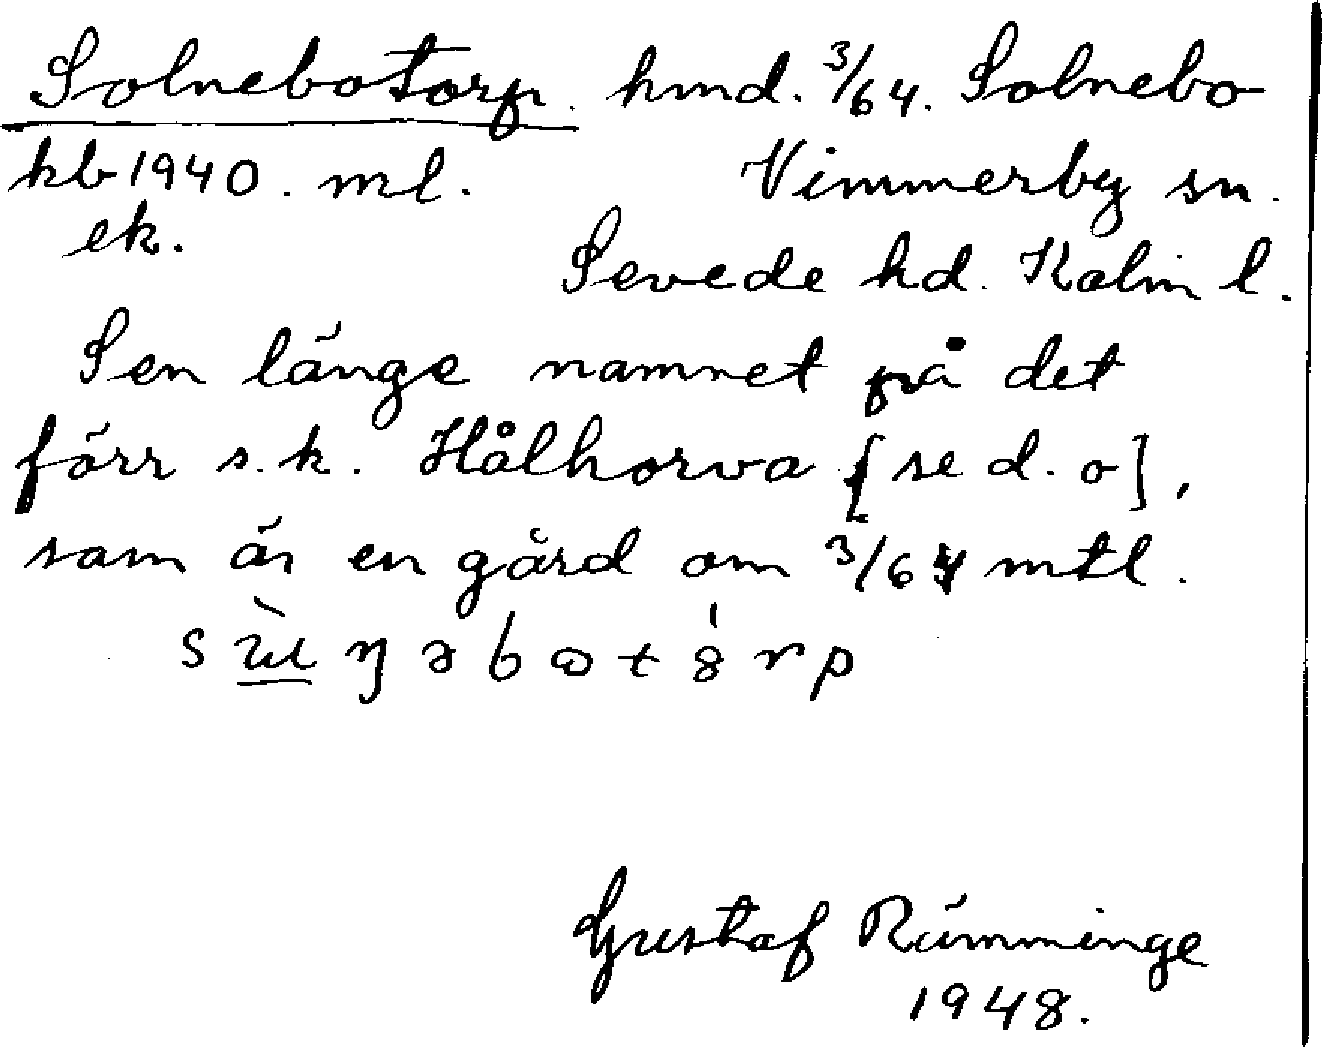 Solnebotorp. hmd. 3/64. Solnebo
kb 1940. ml. Vimmerby sn.
ek.
Sevede hd. Kalm l.
Sen länge namnet på det
förr s.k. Hålhorva [se d. o],
som är en gård om 3/64 mtl.
Gustaf Rämminge
1948.